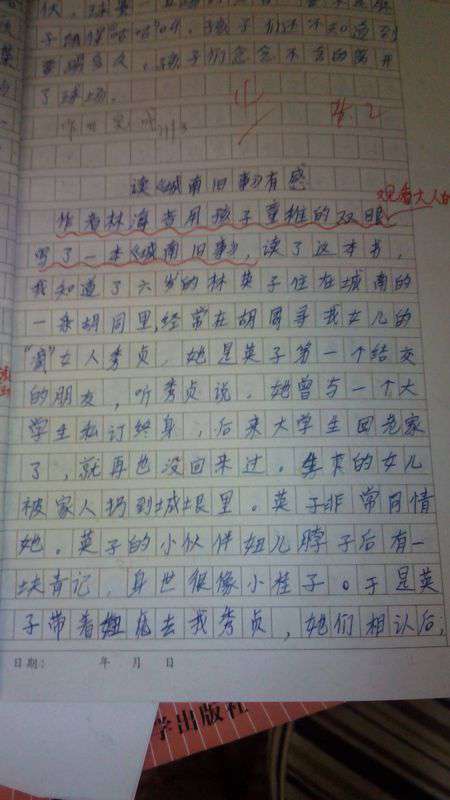 子们
孩子们还不知道到
孩子们恋恋不舍的离开
了球场。
读《城南旧事》有感
观看大人的
作者林海音用孩子童稚的双眼
写了一本《城南旧事》,读了这本书,
我知道了六岁的林英子住在城南的
一条胡同里,经常在胡同寻我女儿的
“疯”女人秀贞,她是英子第一个结交
的朋友,听秀贞说,她曾与一个大
学生私订终身,后来大学生回老家
了,就再也没回来过。的女儿
被家人扔到城根里。英子非常同情
她。英子的小伙伴妞儿脖子后有一
块青记,身世很像小桂子。于是英
子带着妞儿去找秀贞,她们相认后,
日期: 年 月 日
学出版社